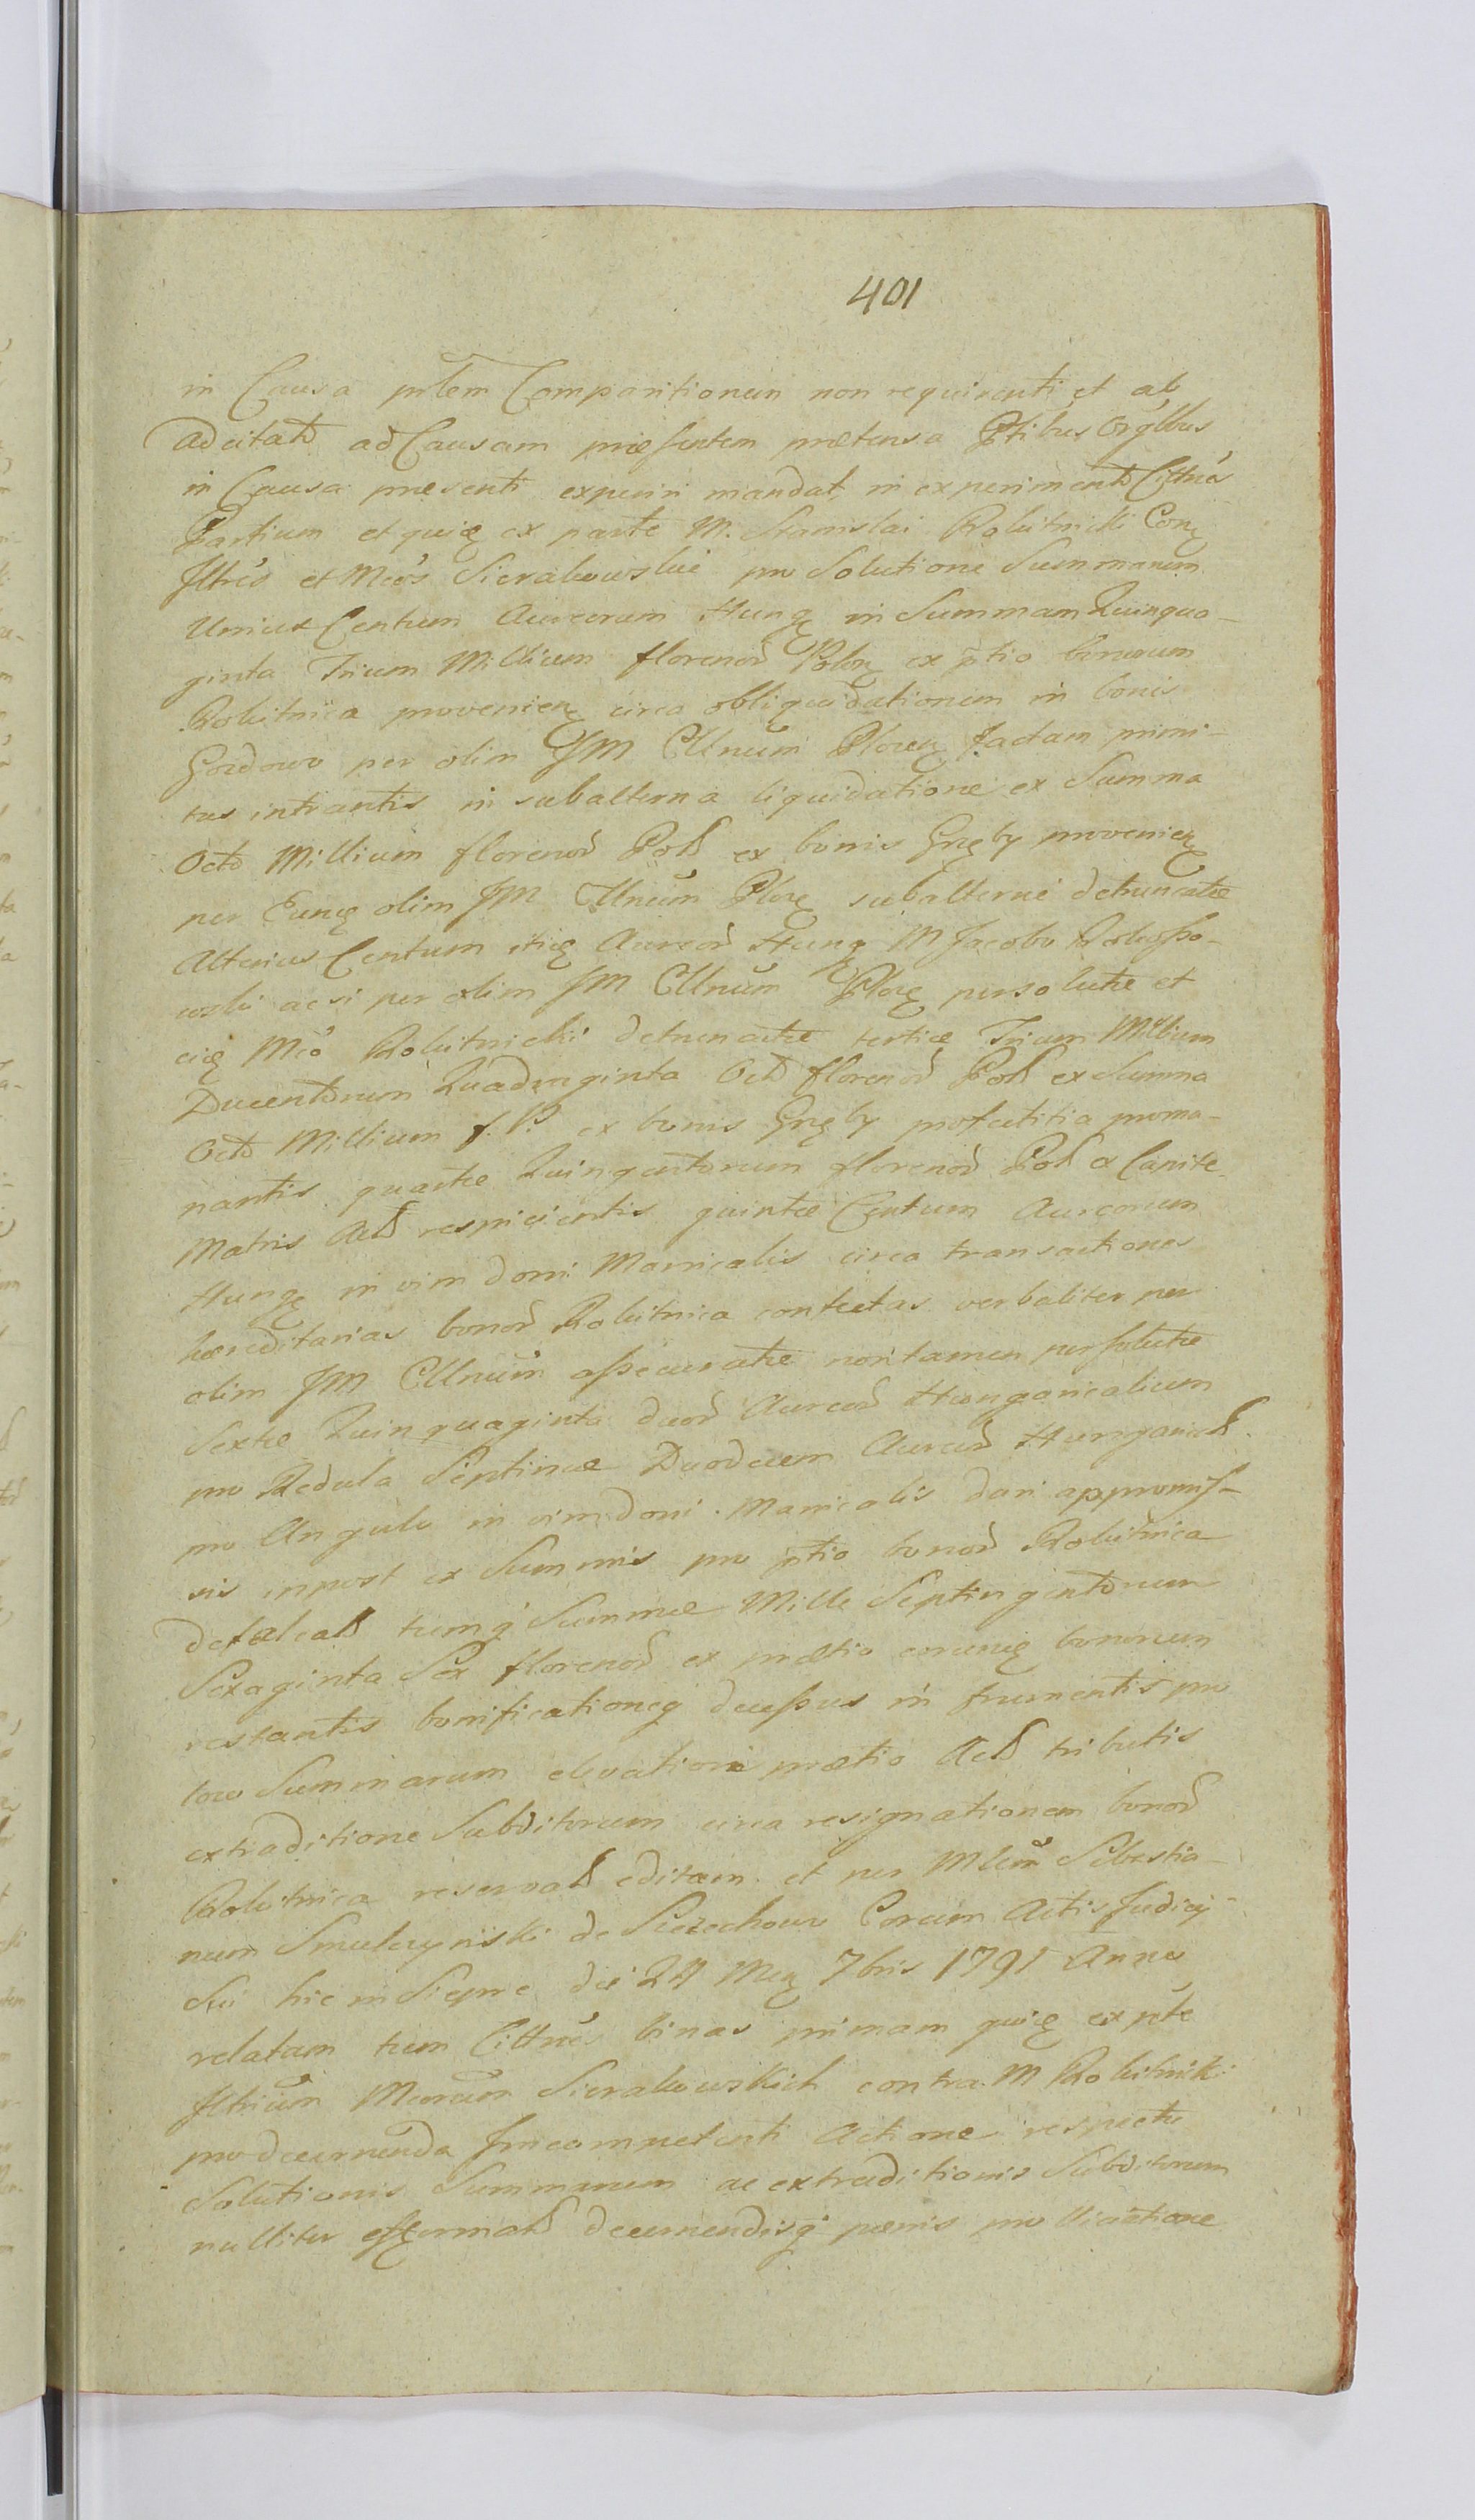 401
in Causa pntem Comparitionem non requirenti et ab
adcitato ad Causam præsentem prætensa Ptibus Orglbus
in Causa præsenti experiri mandat, in experimento Cittnés
Partium et quię ex parte M. Stanislai Rokitnicki Conę
Illres et Mcós Sierakowskie pro Solutione Summarum
Unius Centum Aureorum Hungę in Summam Quinqua-
ginta Trium Millium florenoȓ Polonę ex ptio bonorum
Rokitnica provenienę circa obliquidationem in bonis
Gozdowo per olim JM Cllnum Plocenę factam primi-
tus intrantis in subalterna liquidatione ex Summa
Octo Millium florenoȓ Pol ex bonis Gręby provenienę
per Eunę olim JM Cllnum Plocę subalterne detruncatæ
Alterius Centum itię Aureoȓ Hungę M Jacobo
acsi per olim JM Cllnum Plocę persolutæ et
eię Mco Rokitnicki detruncatæ tertiæ Trium Millium
Ducentorum Quadraginta Octo florenoȓ Pol ex Summa
Octo Millium f. P. ex bonis Gręby profectitia proma-
nantis quartæ Quingentorum florenoȓ Pol a
Matris Act respicientis quintæ Centum Aureorum
Hungę in vim doni Manicalis circa transactiones
hæreditarias bonoȓ Rokitnica confectas verbaliter per
olim JM Cllnum assecuratæ non tamen persolutæ
Sextæ Quinquaginta duoȓ Aureoȓ Hungaricalium
pro Redula Septimæ Duodecem Aureoȓ Hungarical
pro Angulo in vim doni Manicalis dari appromis-
sis inpost ex Summis pro ptio bonoȓ Rokitnica
defalcat tumq Summæ Mille Septingentorum
Sexaginta Sex florenoȓ ex prætio eorunę bonorum
restantis bonificationeq decessus in frumentis pro
toto Summarum elevationi prætio Act tributis
extraditione Subditorum circa resignationem bonoȓ
Rokitnica reservat editam et per Mlem Sebestia-
num Smulczyński de Sierzchowo Coram Actis Judicij
Sui hic in Sierpc die 24 Menę 7bris 1791 Anno
relatam tum Cittnes binas primam quię ex pte
Illrium Mcorum Sierakowskich contra M Rokitnick:
pro decernenda Incompetenti Actione respectu
Solutionis Summarum ac extraditionis Subditorum
nulliter efformat decernendisq pænis pro